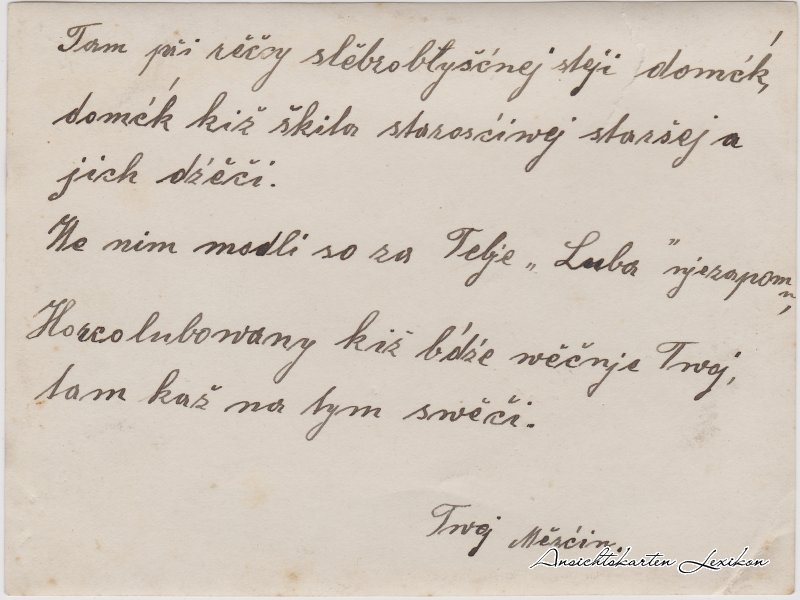 Tam při rěčcy slěbrobłyšćnej steji domćk,
domćk kiž škita starosćiwej staršej a
jich dźěći.
We nim modli so za Tebje „Luba" njezapomń,
Horcolubowany kiž bdźe wěčnje Twoj,
tam kaž na tym swěći.
Twoj Měrćin.
Ansichtskarten Lexikon